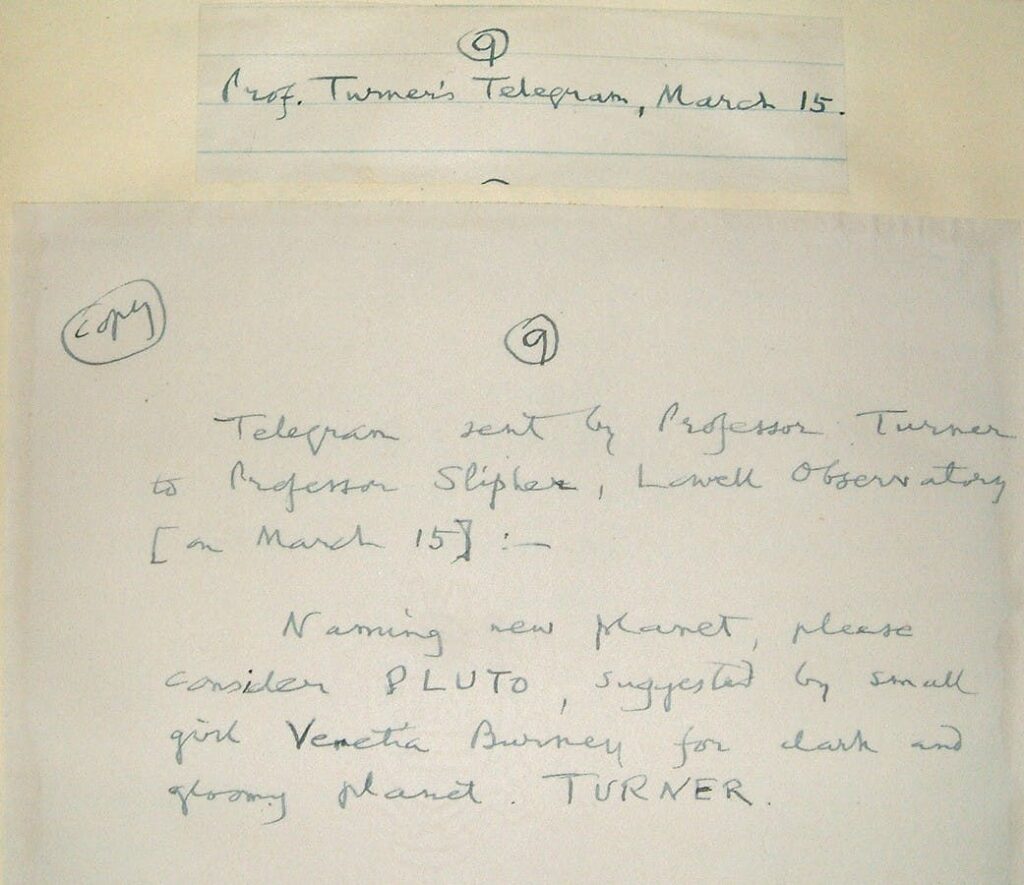 9
Prof. Turner's Telegram, March 15.
copy
9
Telegram sent by Professor Turner
to Professor Slipher, Lowell Observatory
[on March 15] :—
Naming new planet, please
consider PLUTO, suggested by small
girl Venetia Burney for dark and
gloomy planet. TURNER.